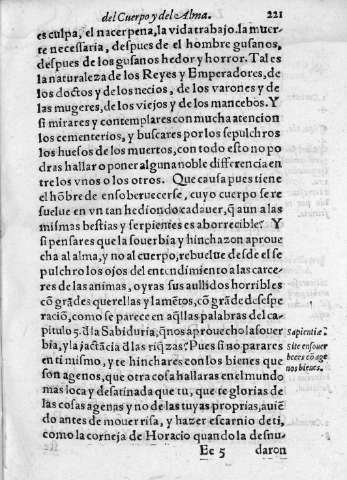 del Cuerpo y del Alma. 221
es culpa, el nacer pena, la vida trabajo. la muer-
te necessaria, despues de el hombre gusanos,
despues de los gusanos hedor y horror. Tal es
la naturaleza de los Reyes y Emperadores, de
los doctos y de los necios, de los varones y de
las mugeres, de los viejos y de los mancebos. Y
si mirares y contemplares con mucha atencion
los cementerios, y buscares por los sepulchros
los huesos de los muertos, con todo esto no po
dras hallar o poner alguna noble differencia en
tre los vnos o los otros. Que causa pues tiene
el hõbre de ensoberuecerse, cuyo cuerpo se re
suelue en vn tan hediondo cadauer, q̃ aun a las
mismas bestias y serpientes es aborrecible? Y
si pensares que la souerbia y hinchazon aproue
cha al alma, y no al cuerpo, rebuelue desde el se
pulchro los ojos del entendimiento a las carce
res de las animas, o y ras sus aullidos horribles
cõ grãdes querellas y lamẽtos, cõ grãde desesp̃
raciõ, como se parece en aq̃llas palabras del ca
pitulo 5. d̃ la Sabiduria, q̃ nos aprouecho la souer
bia, y la jactãcia d̃ las riq̃zas? Pues si no parares
en ti mismo, y te hinchares con los bienes que
son agenos, que otra cosa hallaras en el mundo
mas loca y desatinada que tu, que te glorias de
las cosas agenas y no de las tuyas proprias, auiẽ
do antes de mouer risa, y hazer escarnio de ti,
como la corneja de Horacio quando la desnu-
Ee 5 daron
Sapientiæ.
Si te ensouer
beces cõ age
nos bienes.